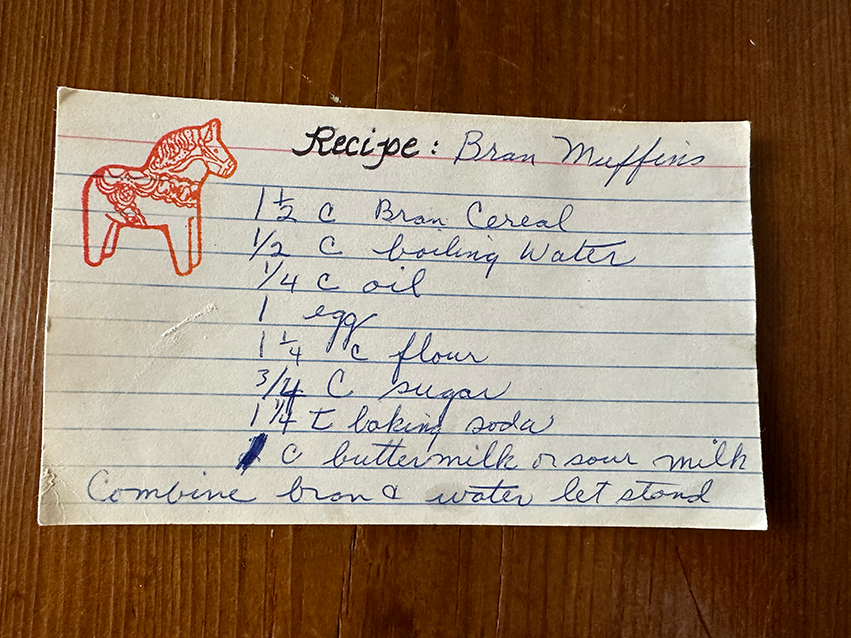 Recipe: Bran Muffins
1 1/2 C Bran Cereal
1/2 C boiling Water
1/4 C oil
1 egg
1 1/4 C flour
3/4 C sugar
1 1/4 t baking soda
C buttermilk or sour milk
Combine bran & water let stand